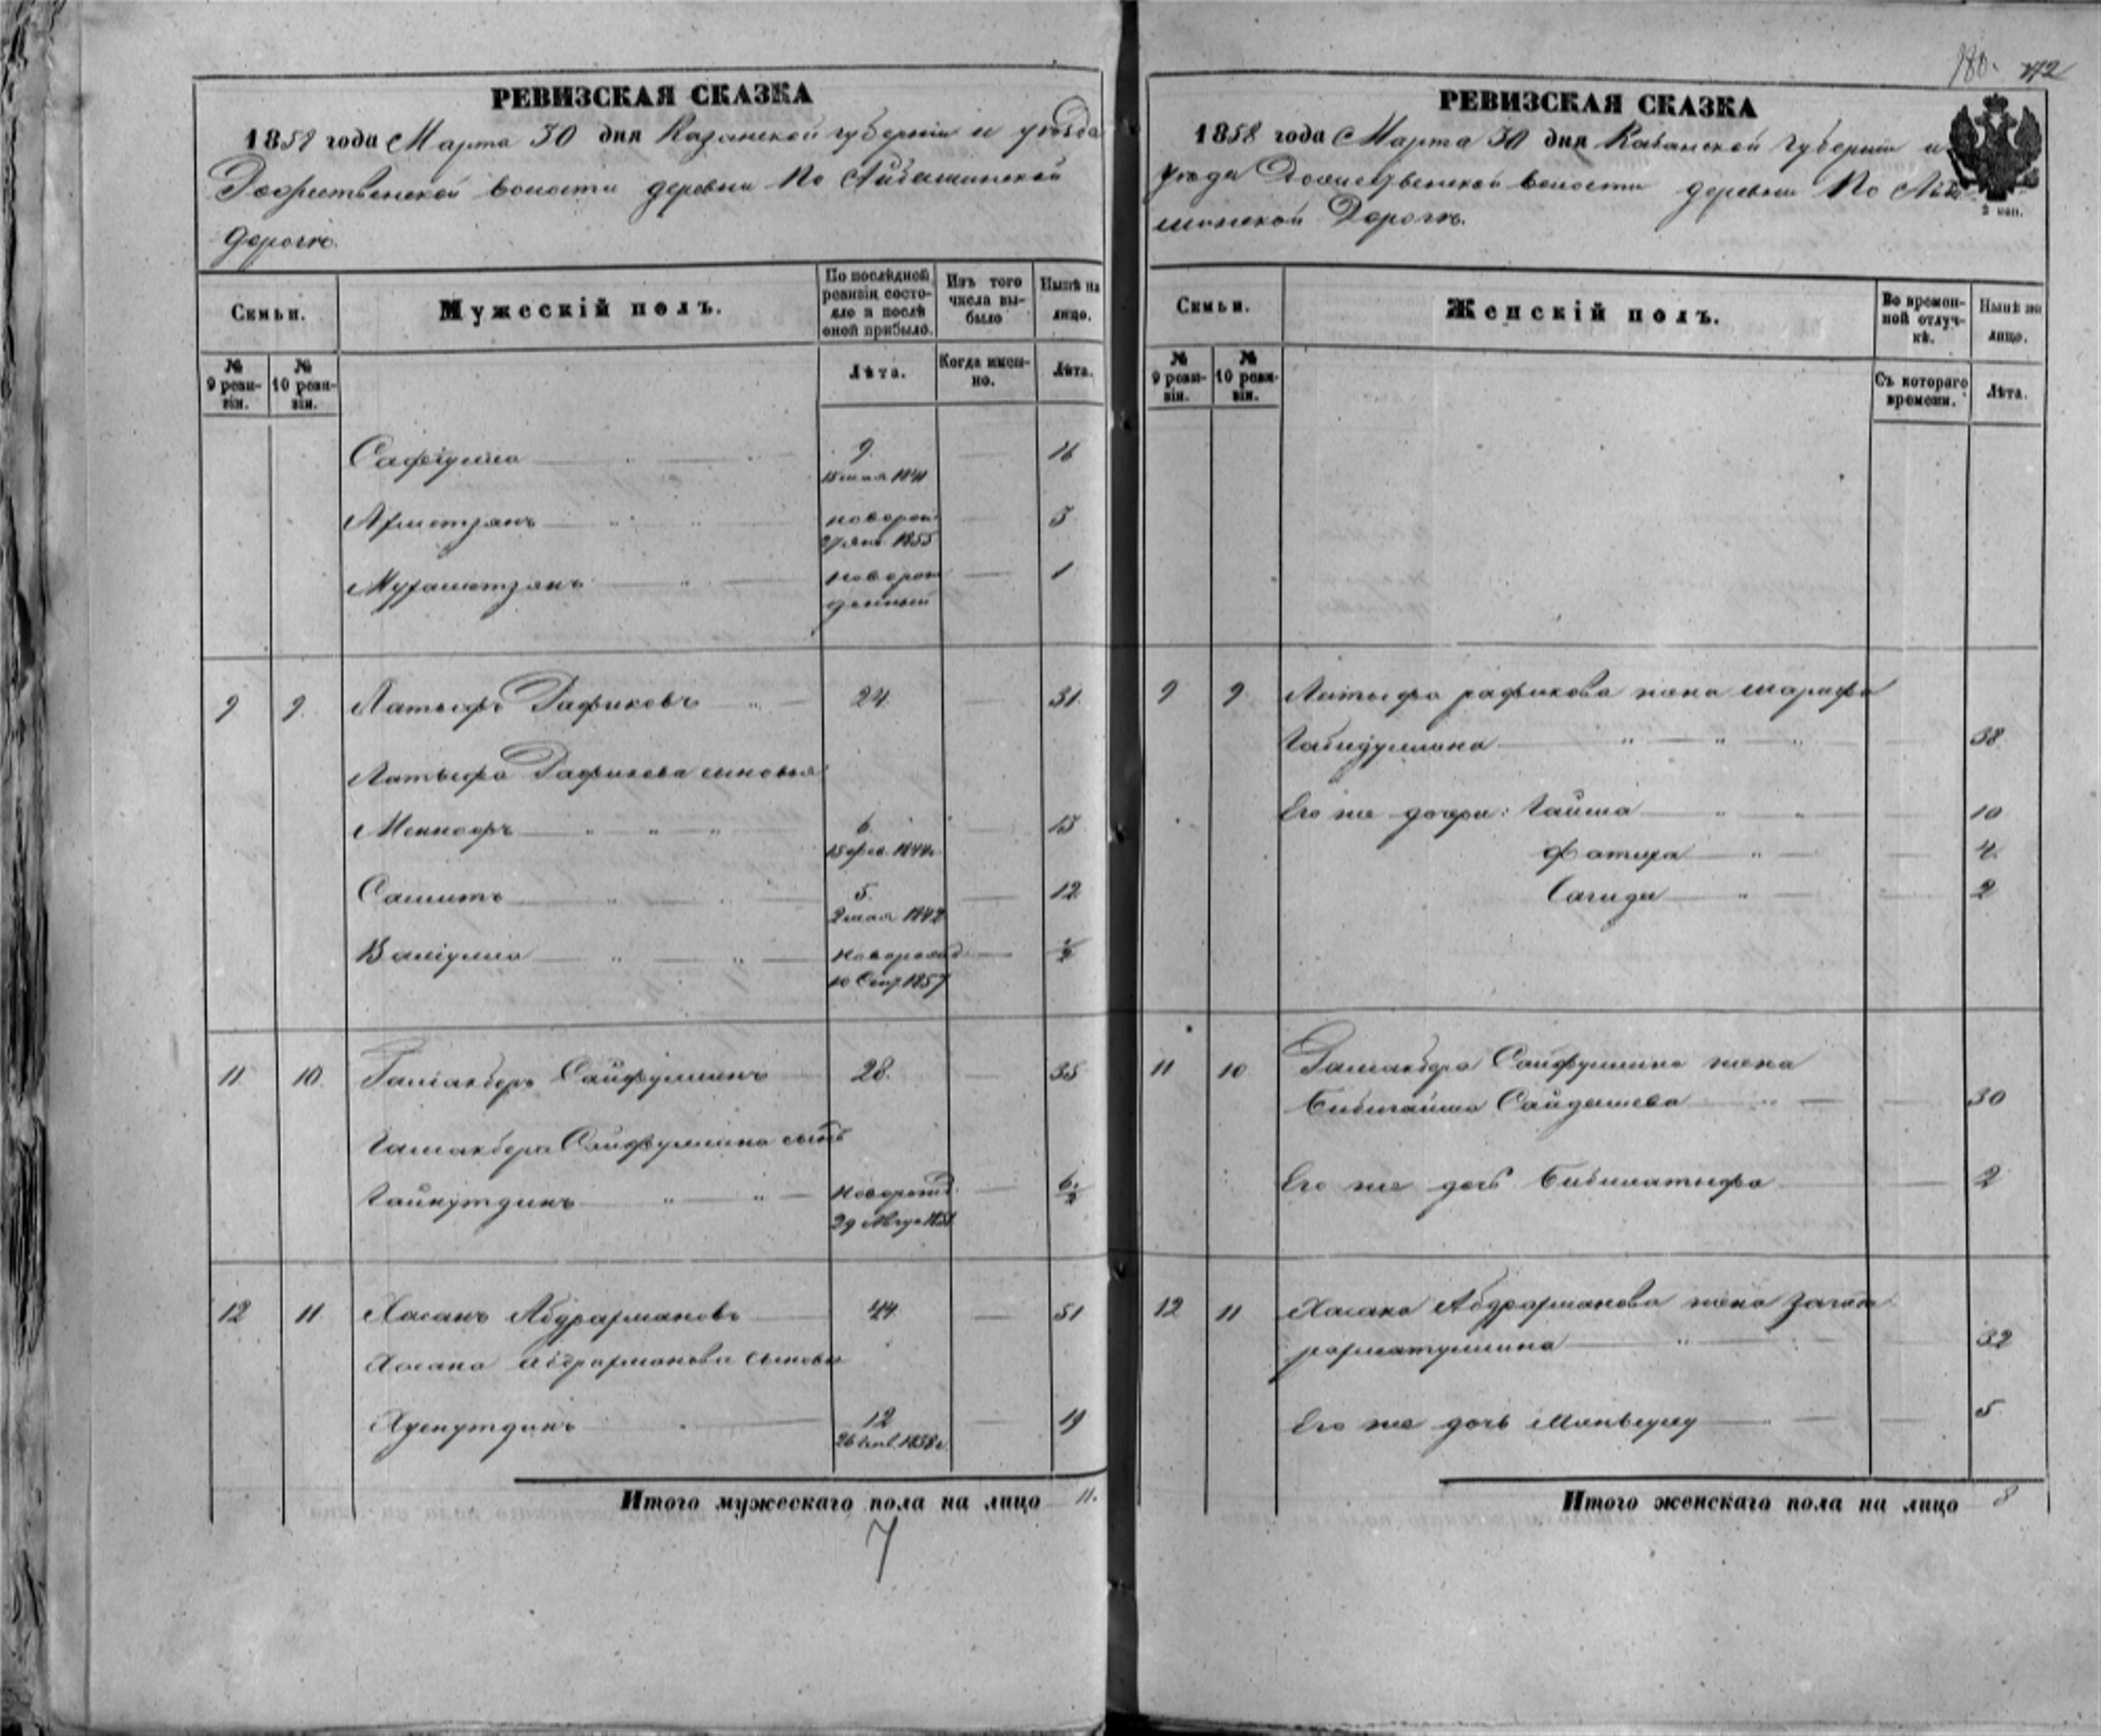 РЕВИЗСКАЯ СКАЗКА
1858 года Марта 30 дня Казанской губернии и уѣзда
волости деревни По Айбашинской
дорогѣ.
Семьи.
Мужескій полъ.
По послѣдней ревизіи состояло и послѣ оной прибыло.
Изъ того числа выбыло
Нынѣ на лицо.
№ 9 ревизіи.
№ 10 ревизіи.
Лѣта.
Когда именно.
Лѣта.
Сафіулла 9. 16
15 мая
Ахметзянъ новорож 3
27 янв. 1855
Мухаметзянъ новорож 1
денный
9 9. Латыфъ Рафиковъ 24. 31.
Латыфа Рафикова сыновья
6. 13
15 фев.
Самитъ 5. 12
2 мая
Валіулла новорожд ½
10 Сент 1857
11. 10. Галіакберъ Сайфуллинъ 28. 35
Галіакбера Сайфуллина сынъ
Гайнутдинъ новорожд. 6/2
29 Авгус
12 11. Хасанъ Абдрахмановъ 44. 51
Хасана Абдрахманова сыновья
Хуснутдинъ 12 19
Итого мужескаго пола на лицо 11.
7
180.
РЕВИЗСКАЯ СКАЗКА
1858 года Марта 30 дня Казанской Губерніи и
уѣзда волости деревни По Айба
шинской Дорогѣ.
2 коп.
Семьи.
Женскій полъ.
Во временной отлучкѣ.
Нынѣ на лицо.
№ 9 ревизіи.
№ 10 ревизіи.
Съ котораго времени.
Лѣта.
9 9. Латыфа рафикова жена шарифа
Габидуллина 38
Его же дочери: Гайша 10
Фатиха 4.
Сагида 2
11 10 Галіакбера Сайфуллина жена
Бибигайша Сайдашева 30
Его же дочь Бибилатыфа 2
12 11 Хасана Абдрахманова жена
рахматуллина 32
Его же дочь 5
Итого женскаго пола на лицо 8